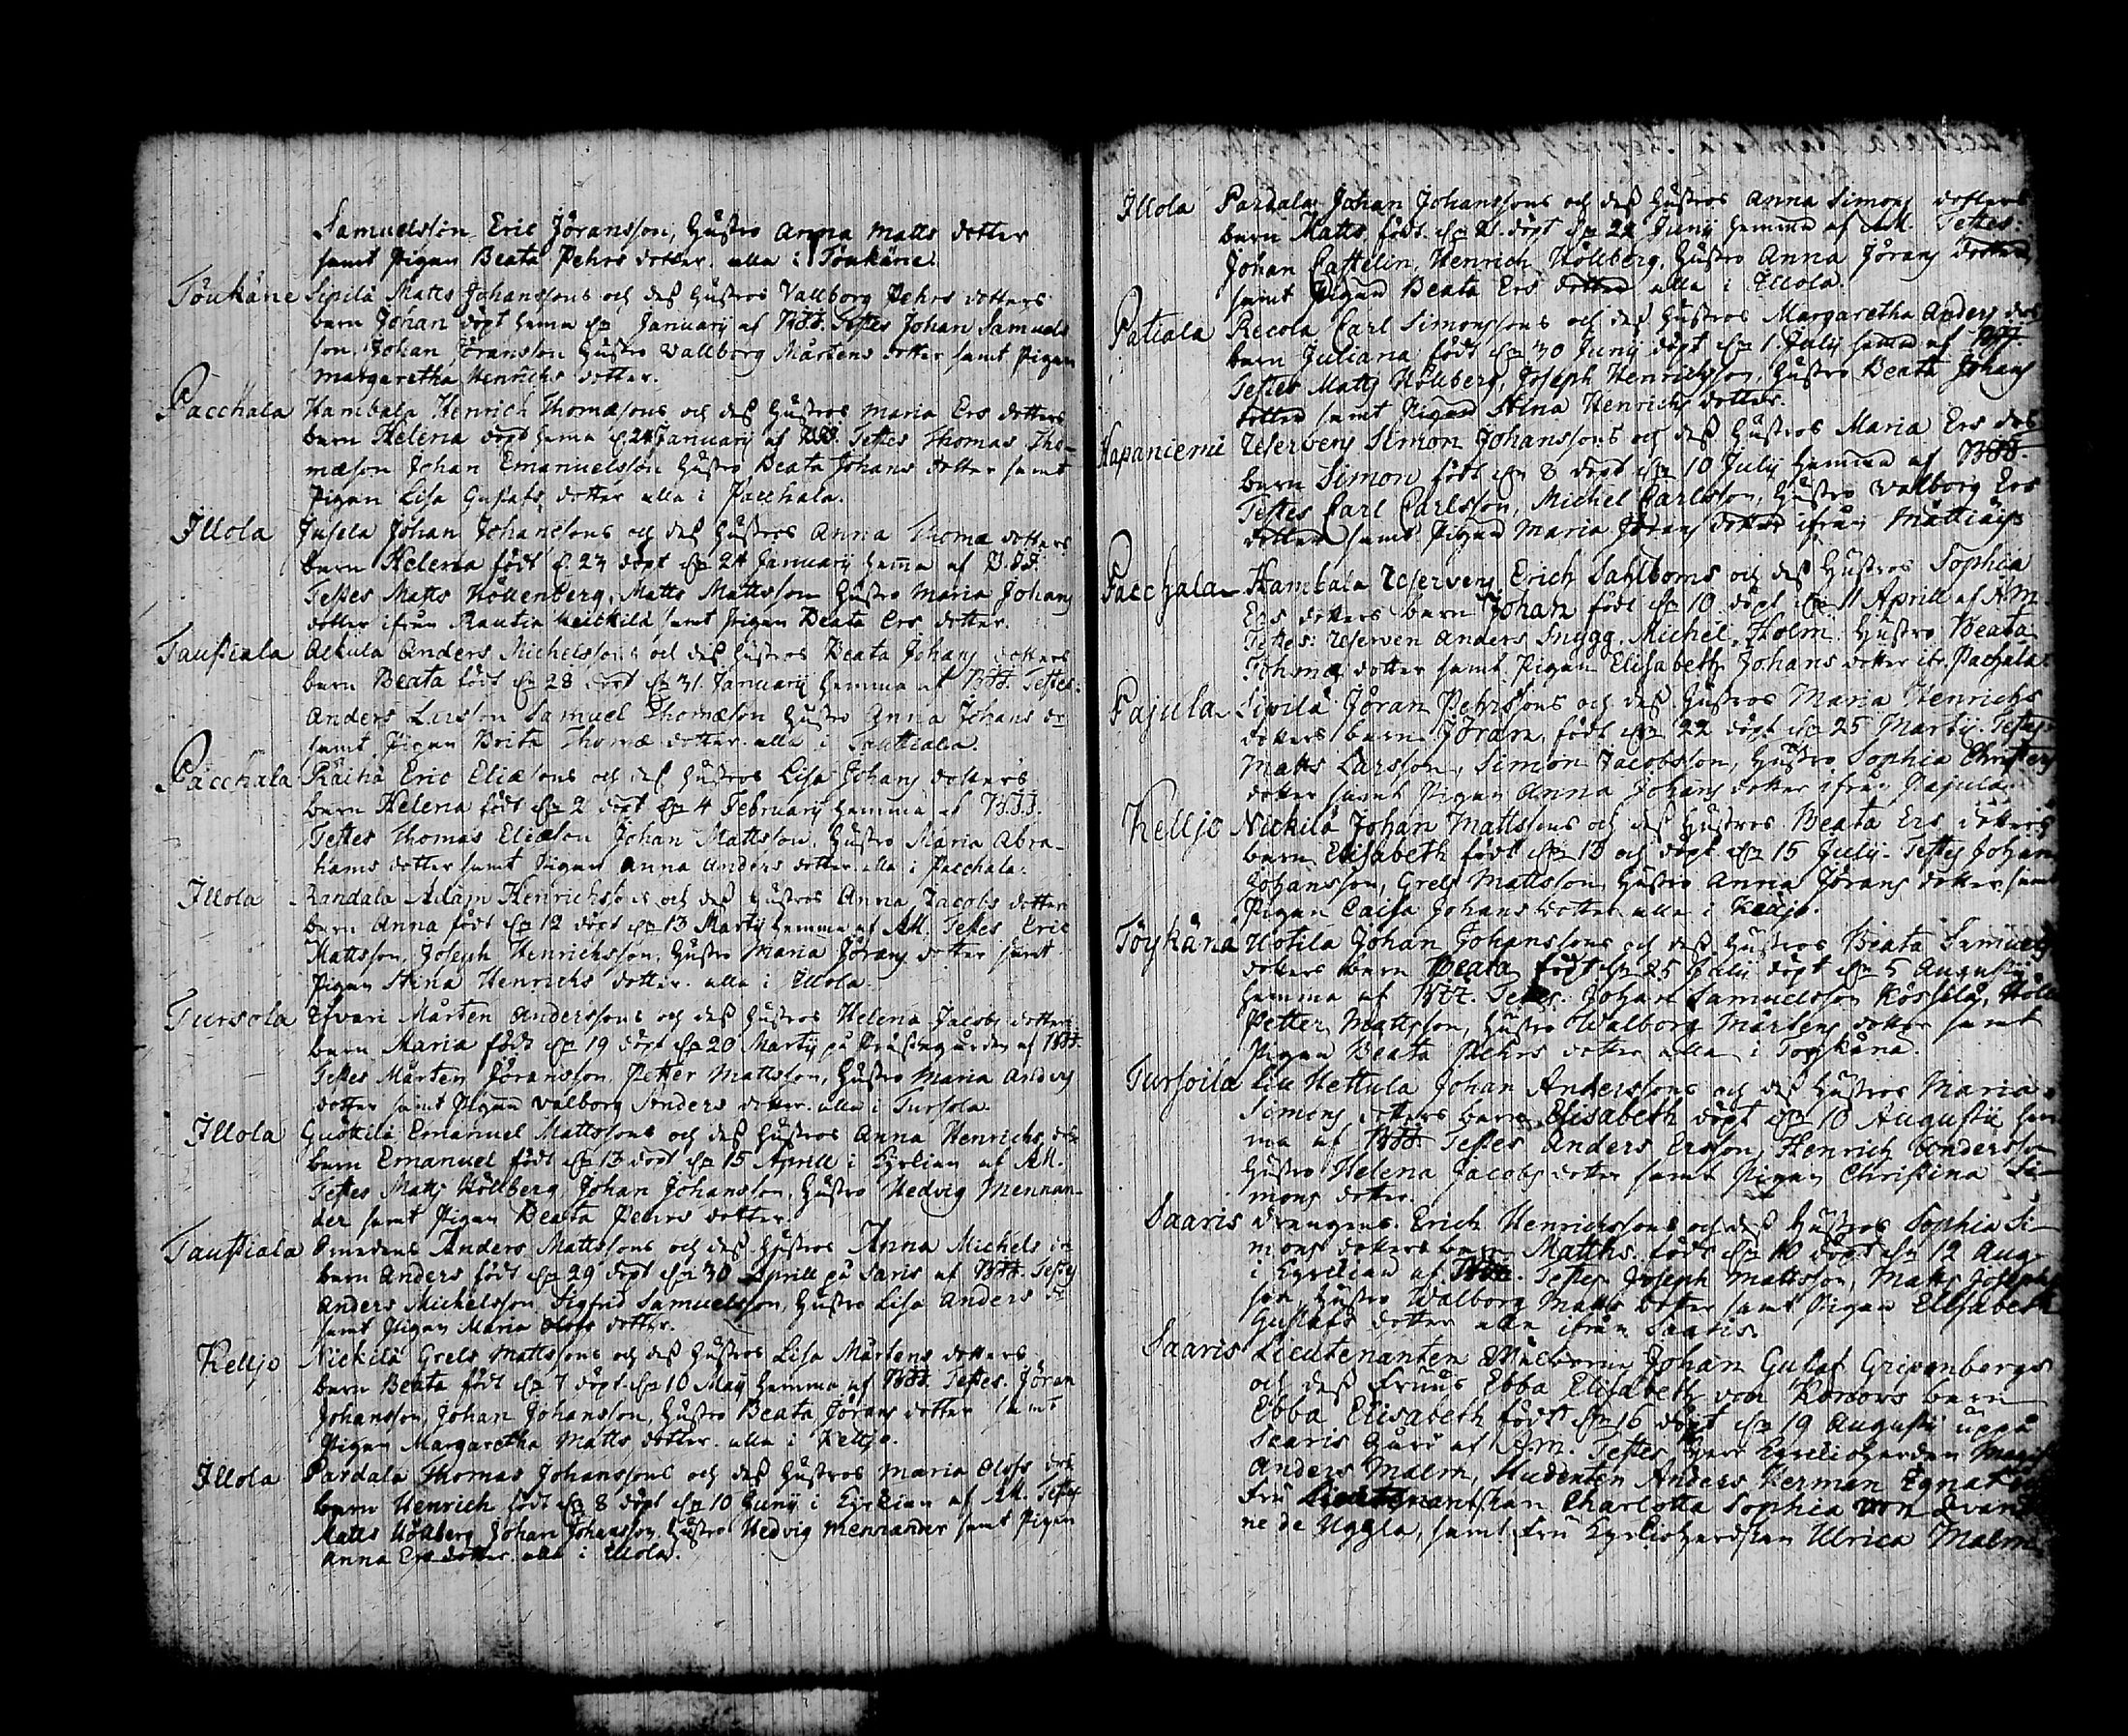 Samuelsson Eric Jöransson, Hustro Anna Matts dotter
samt Pigan Beata Pehrs dotter alla i Töukäne.
Töukäne Sipilä Matts Johanssons och dess Hustros Vallborg Pehrs dotters
barn Johan döpt hema d. January af Testes Johan Samuels
son, Johan Jöransson Hustro Vallborg Mårtens dotter samt Pigan
Margaretha Henrichs dotter.
Pacchala Hambala Henrich Thomæsons och dess Hustros Maria Ers dotters
barn Helena döpt hema d. 24 January af Testes Thomas Tho-
mæson Johan Emanuelsson Hustro Beata Johans dotter samt
Pigan Lisa Gustafs dotter alla i Pacchala.
Illola Jusela Johan Johanssons och dess Hustros Anna Thomæ dotters
barn Helena född d. 23 döpt d. 24 January hema af
Testes Matts Höllenberg, Matts Mattsson Hustro Maria Johans
dotter ifrån Rautia samt Pigan Beata Ers dotter.
Taustiala Ackula Anders Michelssons och dess Hustros Beata Johans dotters
barn Beata född d. 28 döpt d. 31 January hemma af Testes:
Anders Larsson Samuel Thomæson Hustro Anna Johans dr
samt Pigan Brita Thomæ dotter alla i Taustiala.
Pacchala Räihä Eric Eliæsons och dess Hustros Lisa Johans dotters
barn Helena född d. 2 döpt d. 4 February hemma af
Testes Thomas Eliæson Johan Mattsson, Hustro Maria Abra-
hams dotter samt Pigan Anna Anders dotter alla i Pacchala.
Illola Randala Adam Henrichssons och dess Hustros Anna Jacobs dotter
barn Anna född d. 12 döpt d. 13 Martij hemma af AM. Testes Eric
Mattsson, Joseph Henrichsson, Hustro Maria Jörans dotter samt
Pigan Stina Henrichs dotter alla i Illola.
Tursola Ifvari Mårten Anderssons och dess Hustros Helena Jacobs dotters
barn Maria född d. 19 döpt d. 20 Martij på af
Testes Mårten Jöransson Petter Mattsson, Hustro Maria Anders
dotter samt Pigan Valborg Anders dotter alla i Tursola.
Illola Emanuel Mattssons och dess Hustros Anna Henrichs dr
barn Emanuel född d. 13 döpt d. 15 Aprill i Kyrkian af AM.
Testes Matts Höllberg, Johan Johansson, Hustro Hedvig Mennan-
der samt Pigan Beata Pehrs dotter.
Taustiala Anders Mattssons och dess Hustros Anna Michels dr
barn Anders född d. 29 döpt d. 30 Aprill på Saris af Testes
Anders Michelsson, Sigfrid Samuelsson, Hustro Lisa Anders dr
samt Pigan Maria Olofs dotter.
Kelljo Nickilä Grels Mattssons och dess Hustros Lisa Mårtens dotters
barn Beata född d. 7 döpt d. 10 Maij hemma af Testes Jöran
Johansson, Johan Johansson, Hustro Beata Jörans dotter samt
Pigan Margaretha Matts dotter alla i Kelljo.
Illola Pardala Thomas Johanssons och dess Hustros Maria Olofs dotr
barn Henrich född d. 8 döpt d. 10 Junij i Kyrkian af AM. Testes
Matts Höllberg, Johan Johansson, Hustro Hedvig Mennander samt Pigan
Anna Ers dotter alla i Illola.
Illola Pardala Johan Johanssons och dess Hustros Anna Simons dotters
barn Matts född d. 21 döpt d. 22 Junij hemma af AM. Testes:
Johan Castelin, Henrich Höllberg, Hustro Anna Jörans dotter
samt Pigan Beata Ers dotter alla i Illola.
Patiala Recola Carl Simonssons och dess Hustros Margaretha Anders dos
barn Juliana född d. 30 Junij döpt d. 1 Julij hemma af
Testes Matts Höllberg, Joseph Henrichsson, Hustro Beata Johans
dotter samt Pigan Stina Henrichs dotter.
Hapaniemi Reservens Simon Johanssons och dess Hustros Maria Ers dos
barn Simon född d. 8 döpt d. 10 Julij hemma af
Testes Carl Carlsson, Michel Carlsson, Hustro Valborg Ers
dotter samt Pigan Maria Jörans dotter ifrån
Pacchala Hambala Reservens Erich Sahlboms och dess Hustros Sophia
Ers dotters barn Johan född d. 10 döpt d. 11 Aprill af AM.
Testes: Reserven Anders Snygg, Michel Holm, Hustro Beata
Thomæ dotter samt Pigan Elisabeth Johans dotter Pachala
Pajula Sipilä Jöran Pehrssons och dess Hustros Maria Henrichs
dotters barn Jöran, född d. 22 döpt d. 25 Martij. Testes
Matts Larsson, Simon Jacobsson, Hustro Sophia Christers
dotter samt Pigan Anna Johans dotter ifrån Pajula.
Kelljo Nickilä Johan Mattssons och dess Hustros Beata Ers dotters
barn Elisabeth född d. 13 och döpt d. 15 Julij. Testes Johan
Johansson, Grels Mattsson, Hustro Anna Jörans dotter samt
Pigan Caisa Johans dotter alla i Kelljo.
Töykänä Uotila Johan Johanssons och dess Hustros Beata Samuels
dotters barn Beata född d. 25 Julij döpt d. 5 Augustij
hemma af Testes Johan Samuelsson
Petter Mattsson, Hustro Walborg Mårtens dotter samt
Pigan Beata Pehrs dotter alla i Toykänä.
Tursoila Liu Hettula Johan Anderssons och dess Hustros Maria
Simons dotters barn Elisabeth döpt d. 10 Augustij hem
ma af Testes Anders Ersson, Henrich Andersson
Hustro Helena Jacobs dotter samt Pigan Christina Si-
mons dotter.
Saaris drengens Erich Henrichssons och dess Hustros Sophia Si-
mons dotters barn Matths född d. 10 döpt d. 12 Aug.
i Kyrckian af Testes Joseph Mattsson, Matts Josephs
son, Hustro Walborg Matts dotter samt Pigan Elisabeth
Gustafs dotter alla ifrån Saaris.
Saaris Lieutenanten Wälborne Johan Gustaf Gripenbergs
och dess Fruus Ebba Elisabeth von barn
Ebba Elisabeth född d. 16 döpt d. 19 Augusti uppå
Scaris Gård af Am. Testes Herr Kyrckioherden Mag
Anders Malm, Studenten Anders Herman
Fru Lieutenantskan Charlotta Sophia von
ne de Uggla, samt Fru Kyrckioherdskan Ulrica Malm